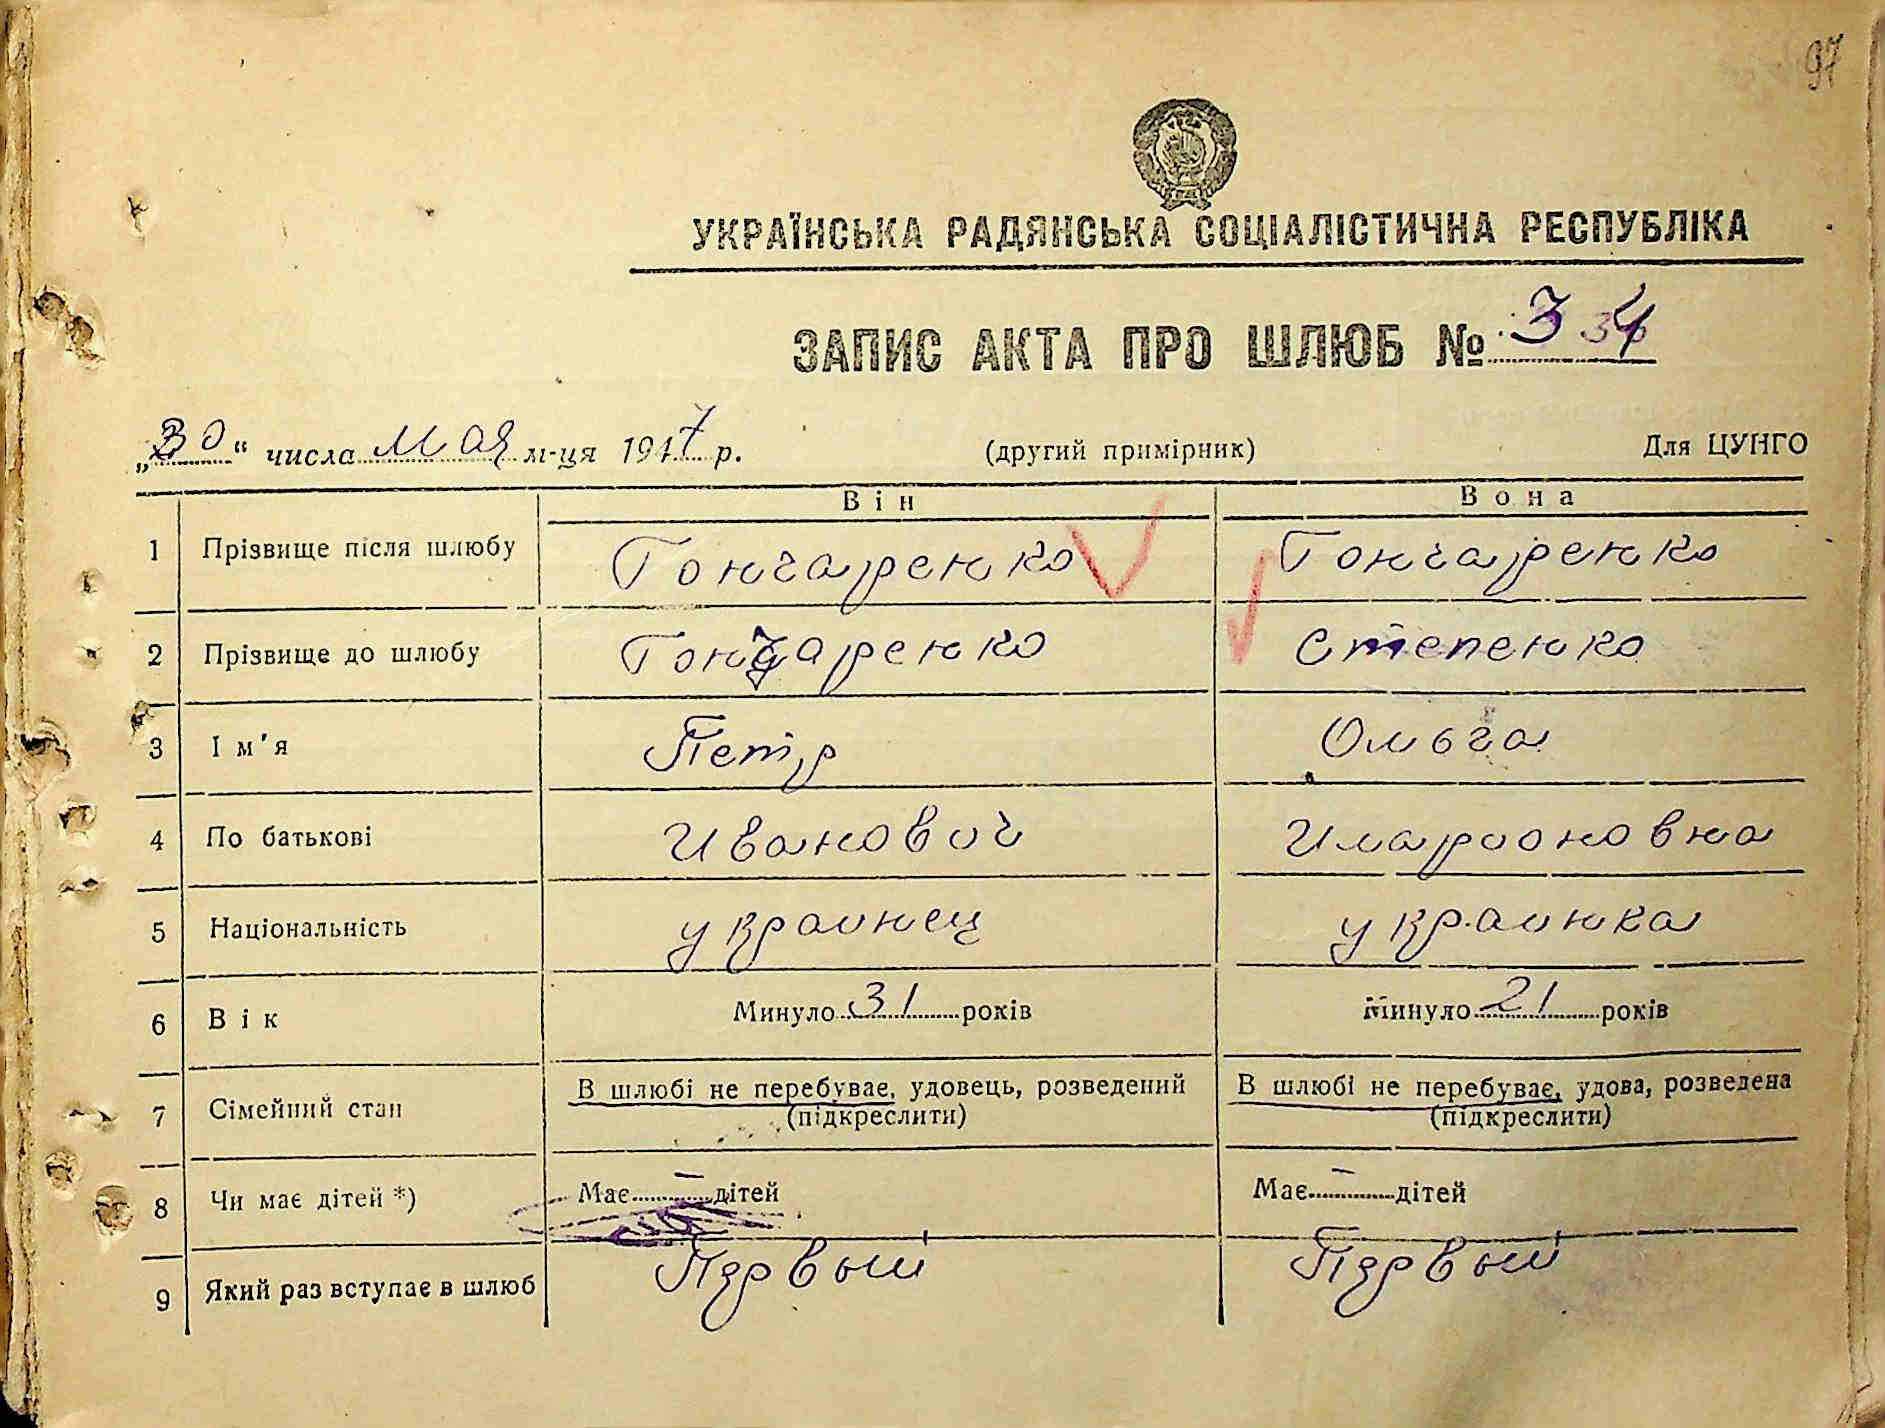 97
УКРАЇНСЬКА РАДЯНСЬКА СОЦІАЛІСТИЧНА РЕСПУБЛІКА
ЗАПИС АКТА ПРО ШЛЮБ № 334
„30“ числа Мая м-ця 1947 р. (другий примірник) Для ЦУНГО
Він Вона
1 Прізвище після шлюбу Гончаренко Гончаренко
2 Прізвище до шлюбу Гончаренко Степенко
3 Ім'я Петр Ольга
4 По батькові Иванович Иларионовна
5 Національність украинец украинка
6 Вік Минуло 31 років Минуло 21 років
7 Сімейний стан В шлюбі не перебуває, удовець, розведений (підкреслити) В шлюбі не перебуває, удова, розведена (підкреслити)
8 Чи має дітей *) Має — дітей Має — дітей
9 Який раз вступає в шлюб Первый Первый